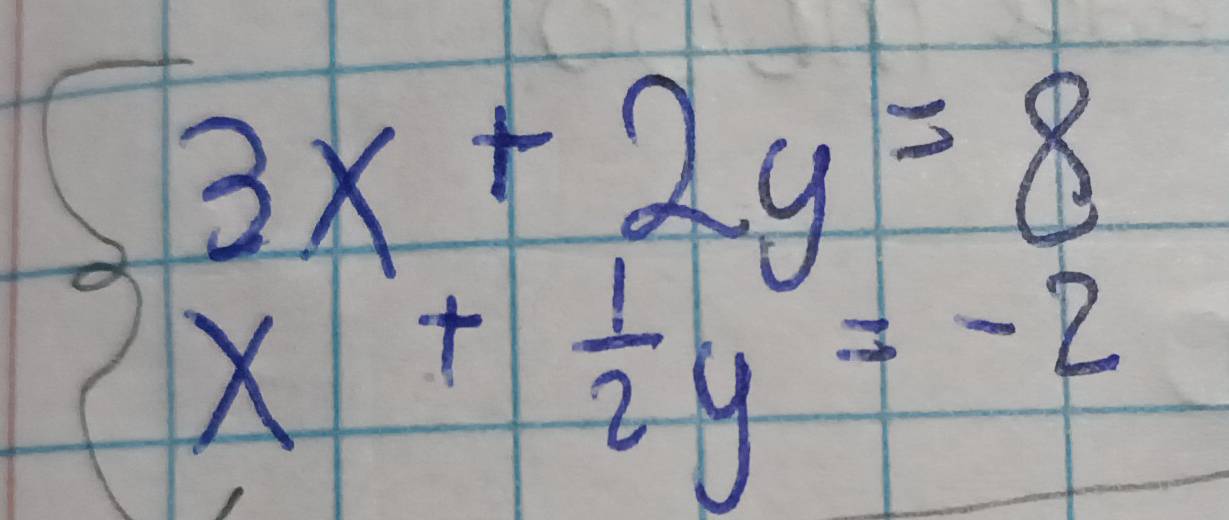 3x + 2y = 8
x + 1/2 y = -2